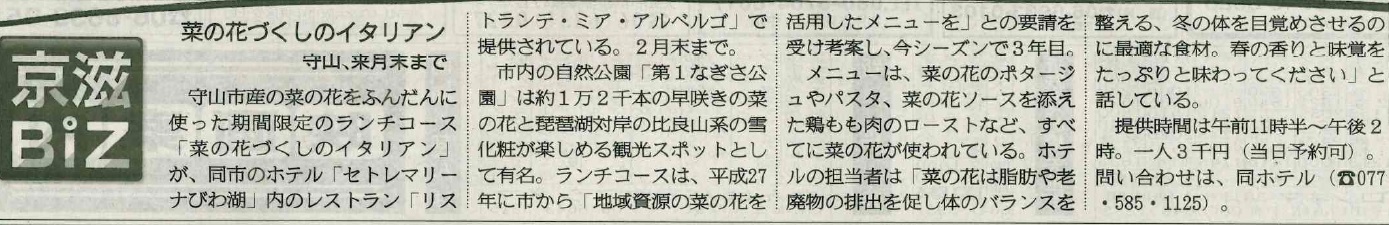 京滋
BiZ
菜の花づくしのイタリアン
守山、来月末まで
守山市産の菜の花をふんだんに
使った期間限定のランチコース
「菜の花づくしのイタリアン」
が、同市のホテル「セトレマリー
ナびわ湖」内のレストラン「リス
トランテ・ミア・アルベルゴ」で
提供されている。2月末まで。
市内の自然公園「第1なぎさ公
園」は約1万2千本の早咲きの菜
の花と琵琶湖対岸の比良山系の雪
化粧が楽しめる観光スポットとし
て有名。ランチコースは、平成27
年に市から「地域資源の菜の花を
活用したメニューを」との要請を
受け考案し、今シーズンで3年目。
メニューは、菜の花のポタージ
ュやパスタ、菜の花ソースを添え
た鶏もも肉のローストなど、すべ
てに菜の花が使われている。ホテ
ルの担当者は「菜の花は脂肪や老
廃物の排出を促し体のバランスを
整える、冬の体を目覚めさせるの
に最適な食材。春の香りと味覚を
たっぷりと味わってください」と
話している。
提供時間は午前11時半〜午後2
時。一人3千円（当日予約可）。
問い合わせは、同ホテル（☎077
・585・1125）。